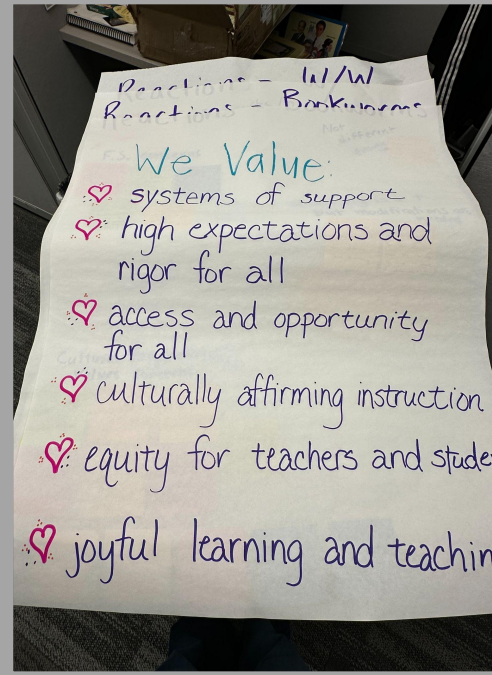 Reactions - W/W
Reactions - Bookworms
We Value:
systems of support
high expectations and
rigor for all
access and opportunity
for all
culturally affirming instruction
equity for teachers and stude
joyful learning and teachin